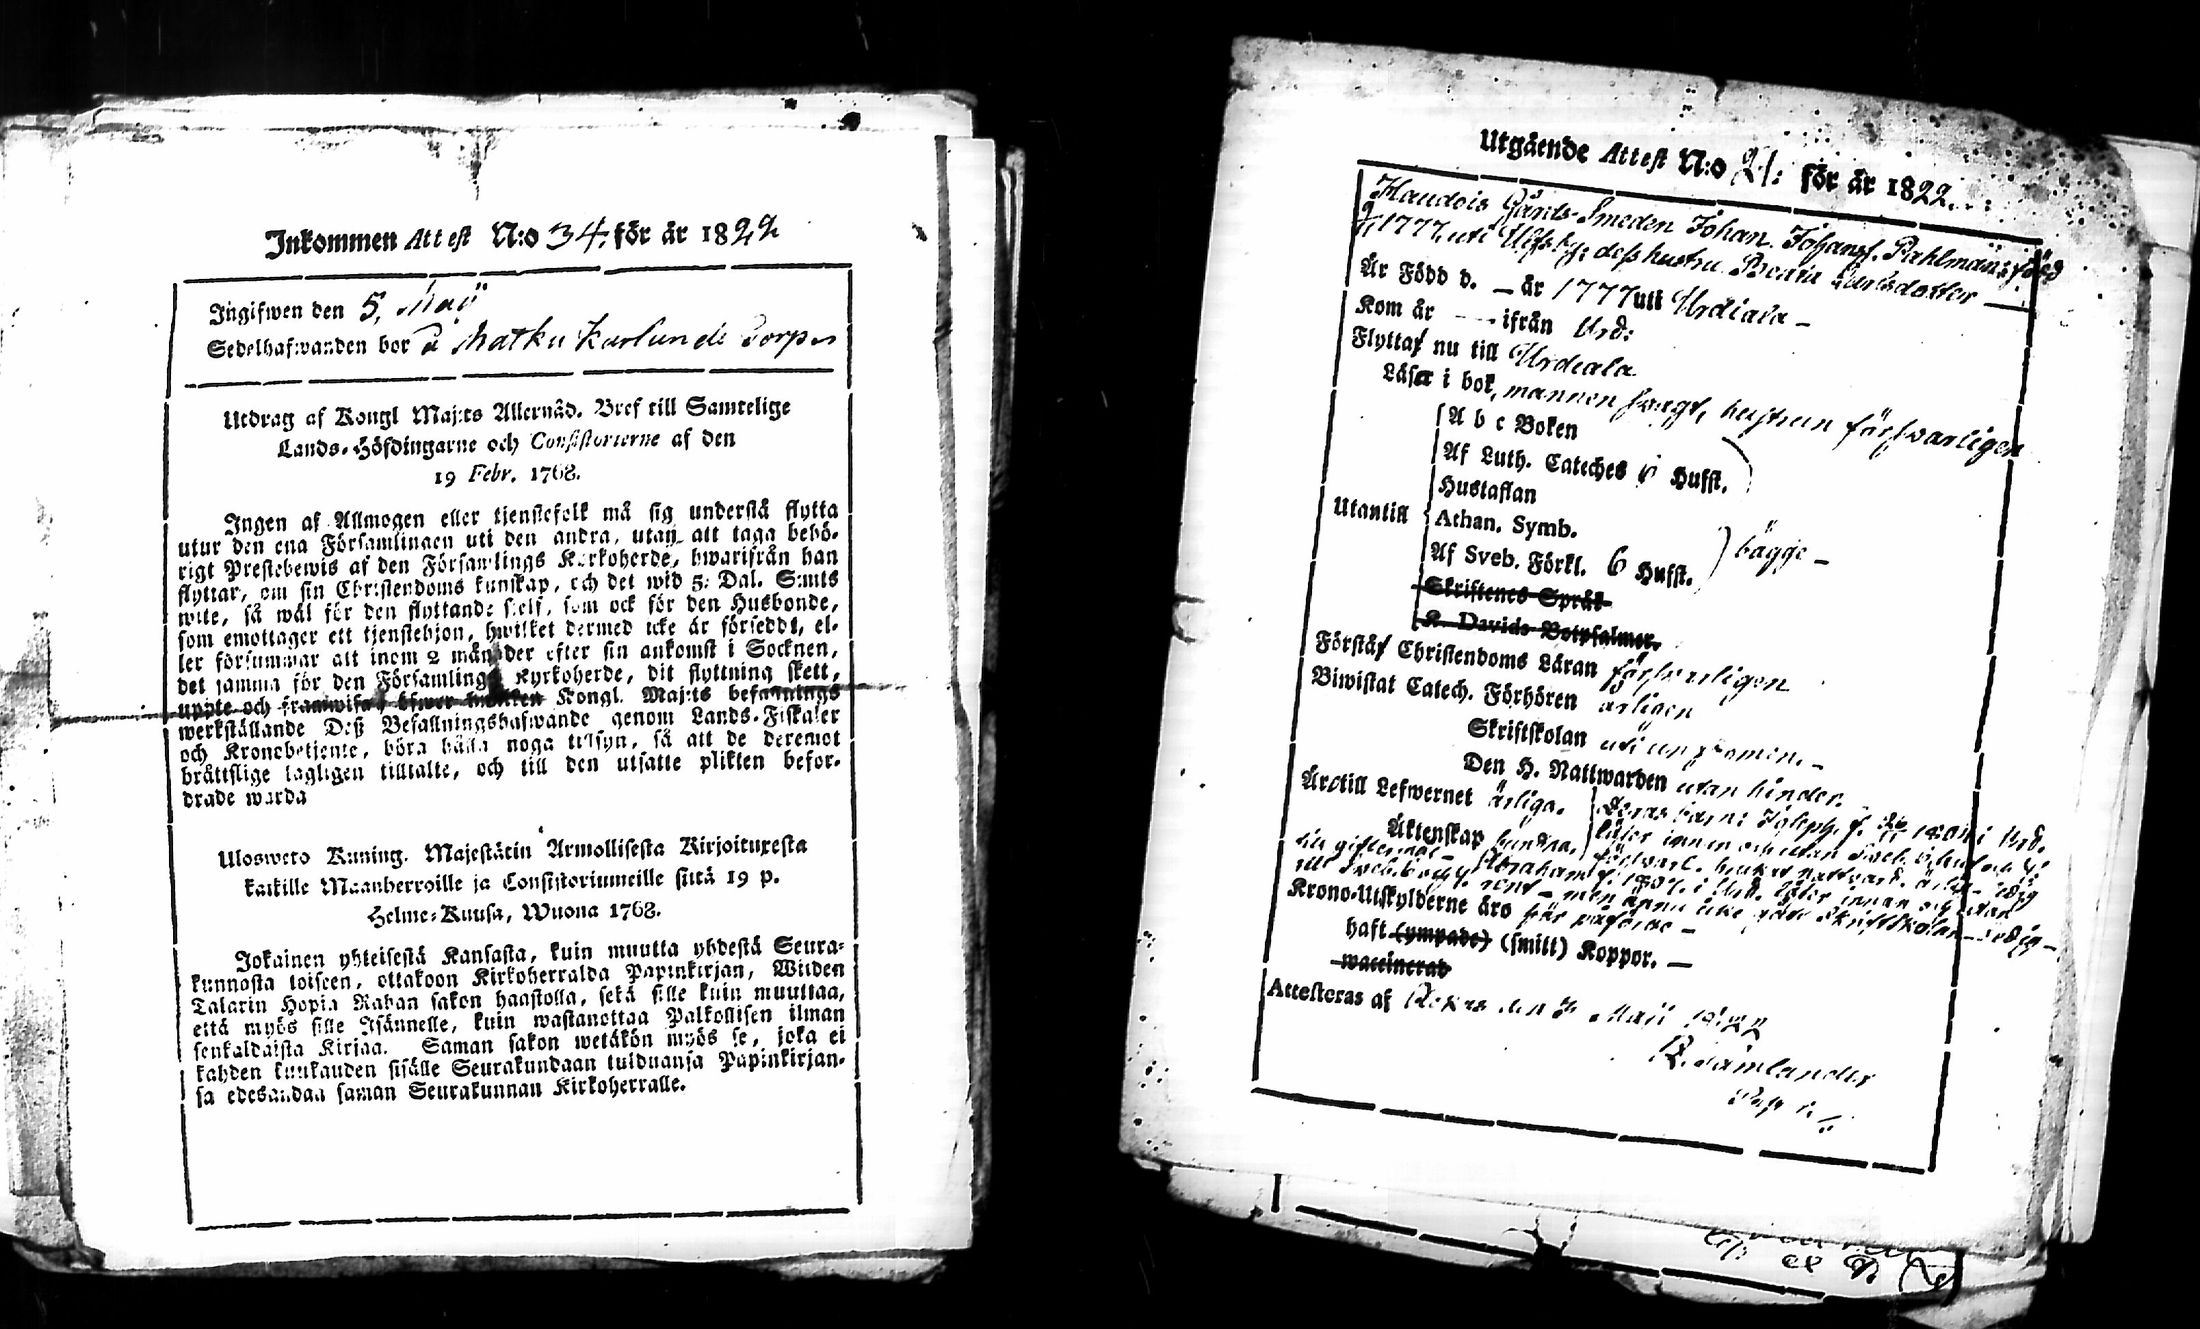 Inkommen Attest N:o 34. för år 1822
Ingifwen den 5, Maij
Sedelhafwanden bor å Matku Karlunde Torp
Utdrag af Kongl Maj:ts Allernåd. Bref till Samtelige
Lands-Höfdingarne och Consistorierne af den
19 Febr. 1768.
Ingen af Allmogen eller tjenstefolk må sig understå flytta
utur den ena Församlingen uti den andra, utan att taga behö-
rigt Prestebewis af den Församlings Kyrkoherde, hwarifrån han
flyttar, om sin Christendoms kunskap, och det wid 5: Dal. S:mts
wite, så wäl för den flyttande sielf, som ock för den Husbonde,
som emottager ett tjenstehjon, hwilket dermed icke är förseddt, el-
ler försummar att inom 2 månader efter sin ankomst i Socknen,
det samma för den Församlings Kyrkoherde, dit flyttning skett,
uppte och framwisa; öfwer hwilken Kongl. Maj:ts befallnings
werkställande Deß Befallningshafwande genom Lands-Fiskaler
och Kronobetjente, böra hålla noga tillsyn, så att de deremot
bråttslige lagligen tilltalte, och till den utsatte plikten befor-
drade warda
Ulosweto Kuning. Majestätin Armollisesta Kirjoituxesta
kaikille Maanherroille ja Consistoriumeille siitä 19 p.
Helme-Kuusa, Wuona 1768.
Jokainen yhteisestä Kansasta, kuin muutta yhdestä Seura-
kunnasta toiseen, ottakoon Kirkoherralda Papinkirjan, Wiiden
Talarin Hopia Rahan sakon haastolla, sekä sille kuin muuttaa,
että myös sille Isännelle, kuin wastanottaa Palkollisen ilman
senkaldaista Kirjaa. Saman sakon wetäkön myös se, joka ei
kahden kuukauden sisälle Seurakundaan tulduansa Papinkirjan-
sa edesandaa saman Seurakunnan Kirkoherralle.
Utgående Attest N:o 21: för år 1822.
Haudois Gårds-Smeden Johan Johansf. Pahlman, född
1777 uti Ulfsby; deß hustru Beata Carlsdotter
Är Född d. — år 1777 uti Urdiala —
Kom år - - ifrån Urd:
Flytta nu till Urdiala
Läser i bok, mannen swagt, hustrun förswarligen
A b c Boken
Af Luth. Cateches 6 Hufst.
Hustaflan
Utantill
Athan. Symb.
Af Sveb. Förkl. 6 Hufst.
bägge —
Skriftenes Språk
K. Davids Botpsalmer.
Förstå Christendoms Läran förswarligen
Biwistat Catech. Förhören årligen
Skriftskolan uti ungdomen. —
Den H. Nattwarden utan hinder.
Äro till Lefwernet ärliga.
Äktenskap bundna.
Deras barn: Joseph, f. 1801 i Urd.
Abraham f. 1807. i Urd. läser innan och utan
Krono-Utskylderne äro här påförde —
haft (ympade) (smitt) Koppor. —
waccinerad
Attesteras af den 3 Maii 1822